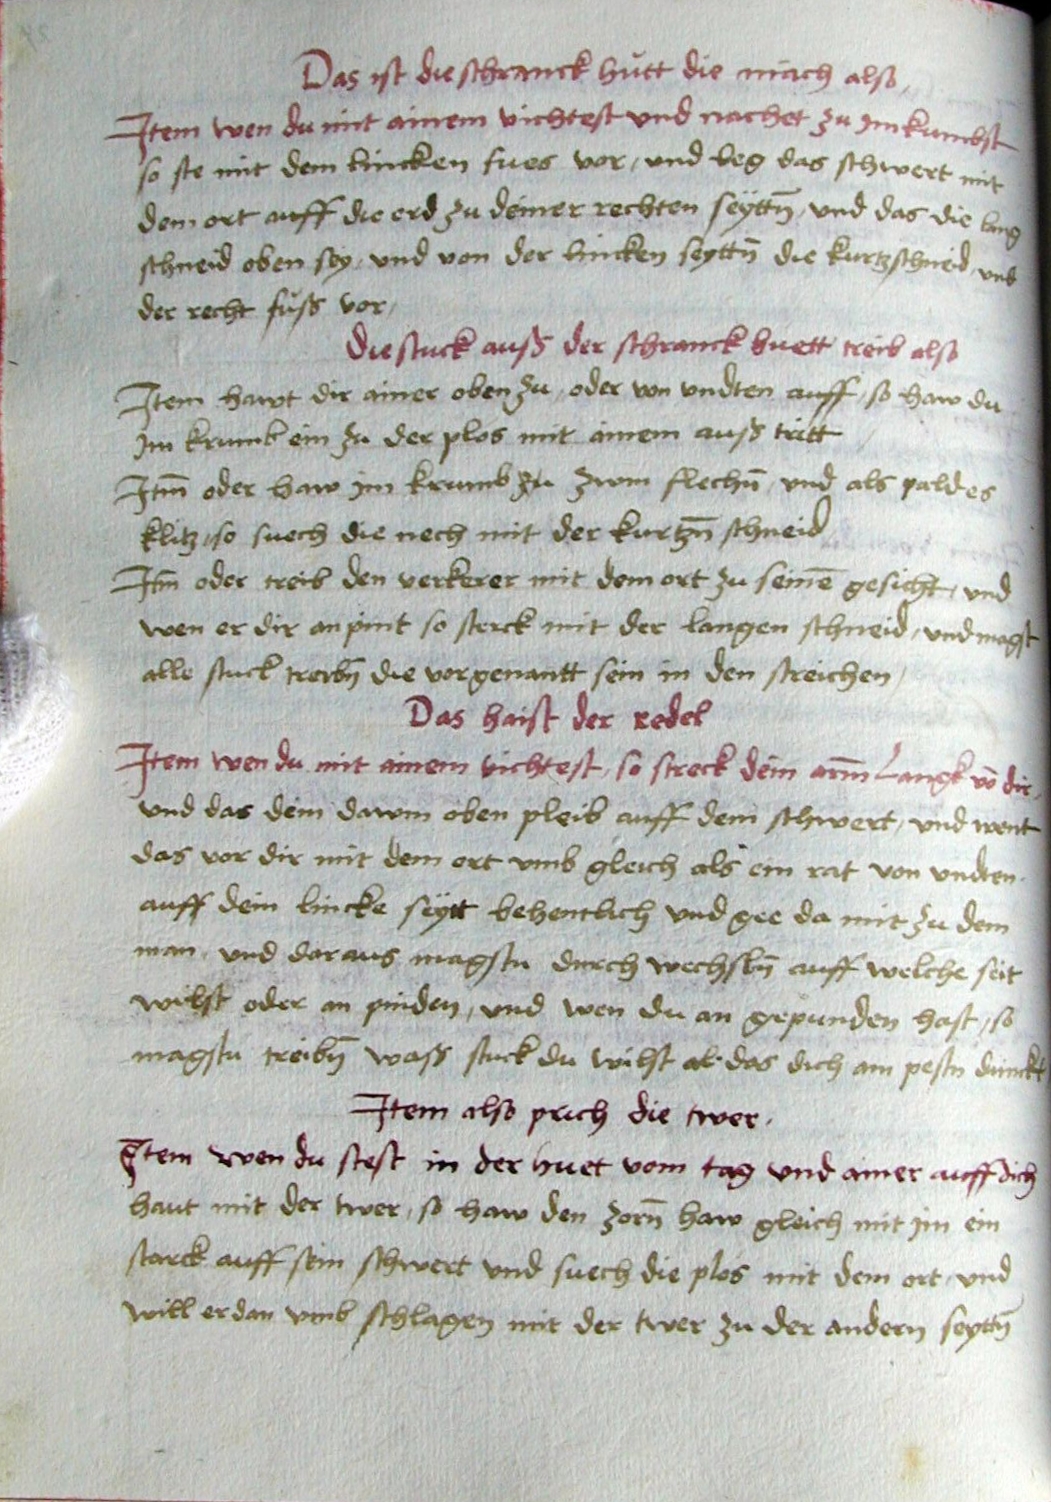 Das ist die schranck hůtt die mach also
Item wen du mit ainem vichtest und nachet zu im kumbst
so ste mit dem lincken fues vor / und leg das schwert mit
dem ort auff die erd zu deiner rechten seÿttn̄ / und das die lang
schneid oben seÿ / und von der lincken seyttn̄ die kurtz schneid / und
der recht fůss vor /
Die stuck auß der schranck huett treib also
Item hawt dir ainer oben zu / oder von undten auff / so haw du
im krumb ein zu der plos mit ainem auß tritt
Itm̄ oder haw im krumb zu zwm flechn̄ / und als pald es
klitz / so suech die nech mit der kurtzn̄ schneid
Itm̄ oder treib den verkerer mit dem ort zu seinē gesicht / und
wen er dir an pint so sterck mit der langen schneid / und magst
alle stuck treibn̄ die vor genantt sein in den streichen /
Das haist der redel
Item wen du mit ainem vichtest / so streck dein arm̄ Langk vō dir /
und das dein dawm oben pleib auff dem schwert / und went
das vor dir mit dem ort vmb gleich als ein rat von undten
auff dein lincke seÿtt behentlich und gee da mit zu dem
man / und dar aus magstu durch wechsln̄ auff welche seit
wilst oder an pinden / und wen du an gepunden hast / so
magstu treibn̄ wass stuck du wilst al das dich am pestn dunckt
Item also prich die twer /
Item wen du stest in der huet vom tag und ainer auff dich
haut mit der twer / so haw den zorn̄ haw gleich mit im ein
starck auff sein schwert und suech die plos mit dem ort / und
will er dan vmb schlagen mit der twer zu der andern seyttn̄